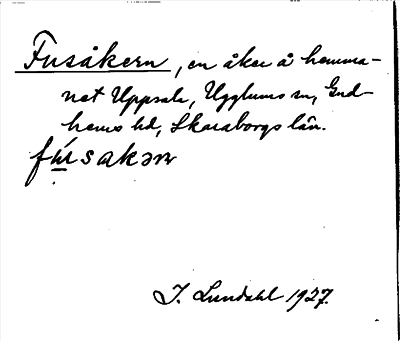 Fusåkern, en åker å hemma-
net Uppsala, Ugglums sn, Gud-
hems hd, Skaraborgs län.
fúsakəɳ
I. Lundahl 1927.